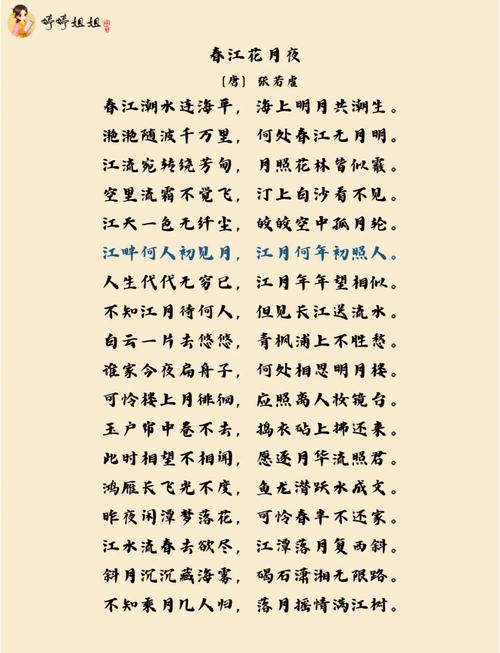 婷婷姐姐
春江花月夜
〔唐〕张若虚
春江潮水连海平，海上明月共潮生。
滟滟随波千万里，何处春江无月明。
江流宛转绕芳甸，月照花林皆似霰。
空里流霜不觉飞，汀上白沙看不见。
江天一色无纤尘，皎皎空中孤月轮。
江畔何人初见月，江月何年初照人。
人生代代无穷已，江月年年望相似。
不知江月待何人，但见长江送流水。
白云一片去悠悠，青枫浦上不胜愁。
谁家今夜扁舟子，何处相思明月楼。
可怜楼上月徘徊，应照离人妆镜台。
玉户帘中卷不去，捣衣砧上拂还来。
此时相望不相闻，愿逐月华流照君。
鸿雁长飞光不度，鱼龙潜跃水成文。
昨夜闲潭梦落花，可怜春半不还家。
江水流春去欲尽，江潭落月复西斜。
斜月沉沉藏海雾，碣石潇湘无限路。
不知乘月几人归，落月摇情满江树。